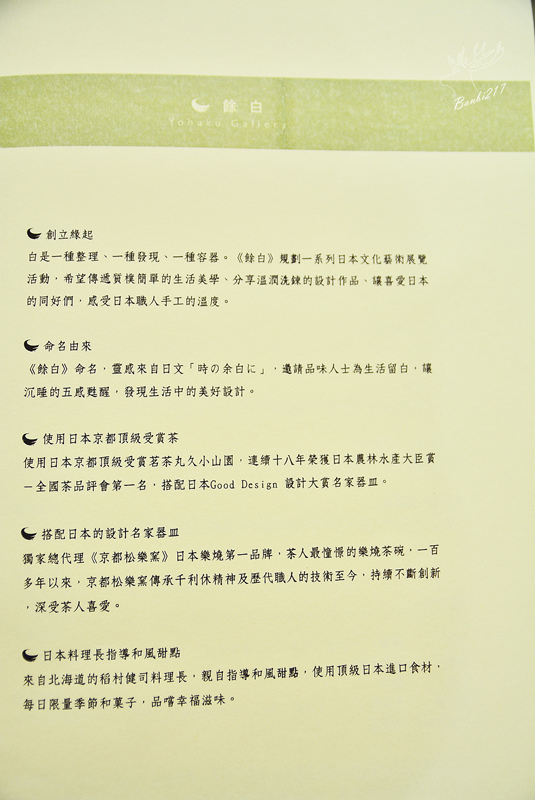 Banbi217
餘白
Yohaku Gallery
創立緣起
白是一種整理、一種發現、一種容器。《餘白》規劃一系列日本文化藝術展覽
活動,希望傳遞質樸簡單的生活美學、分享溫潤洗鍊的設計作品、讓喜愛日本
的同好們,感受日本職人手工的溫度。
命名由來
《餘白》命名,靈感來自日文「時の余白に」,邀請品味人士為生活留白,讓
沉睡的五感甦醒,發現生活中的美好設計。
使用日本京都頂級受賞茶
使用日本京都頂級受賞茗茶丸久小山園,連續十八年榮獲日本農林水產大臣賞
－全國茶品評會第一名,搭配日本Good Design 設計大賞名家器皿。
搭配日本的設計名家器皿
獨家總代理《京都松樂窯》日本樂燒第一品牌,茶人最憧憬的樂燒茶碗,一百
多年以來,京都松樂窯傳承千利休精神及歷代職人的技術至今,持續不斷創新
,深受茶人喜愛。
日本料理長指導和風甜點
來自北海道的稻村健司料理長,親自指導和風甜點,使用頂級日本進口食材,
每日限量季節和菓子,品嚐幸福滋味。